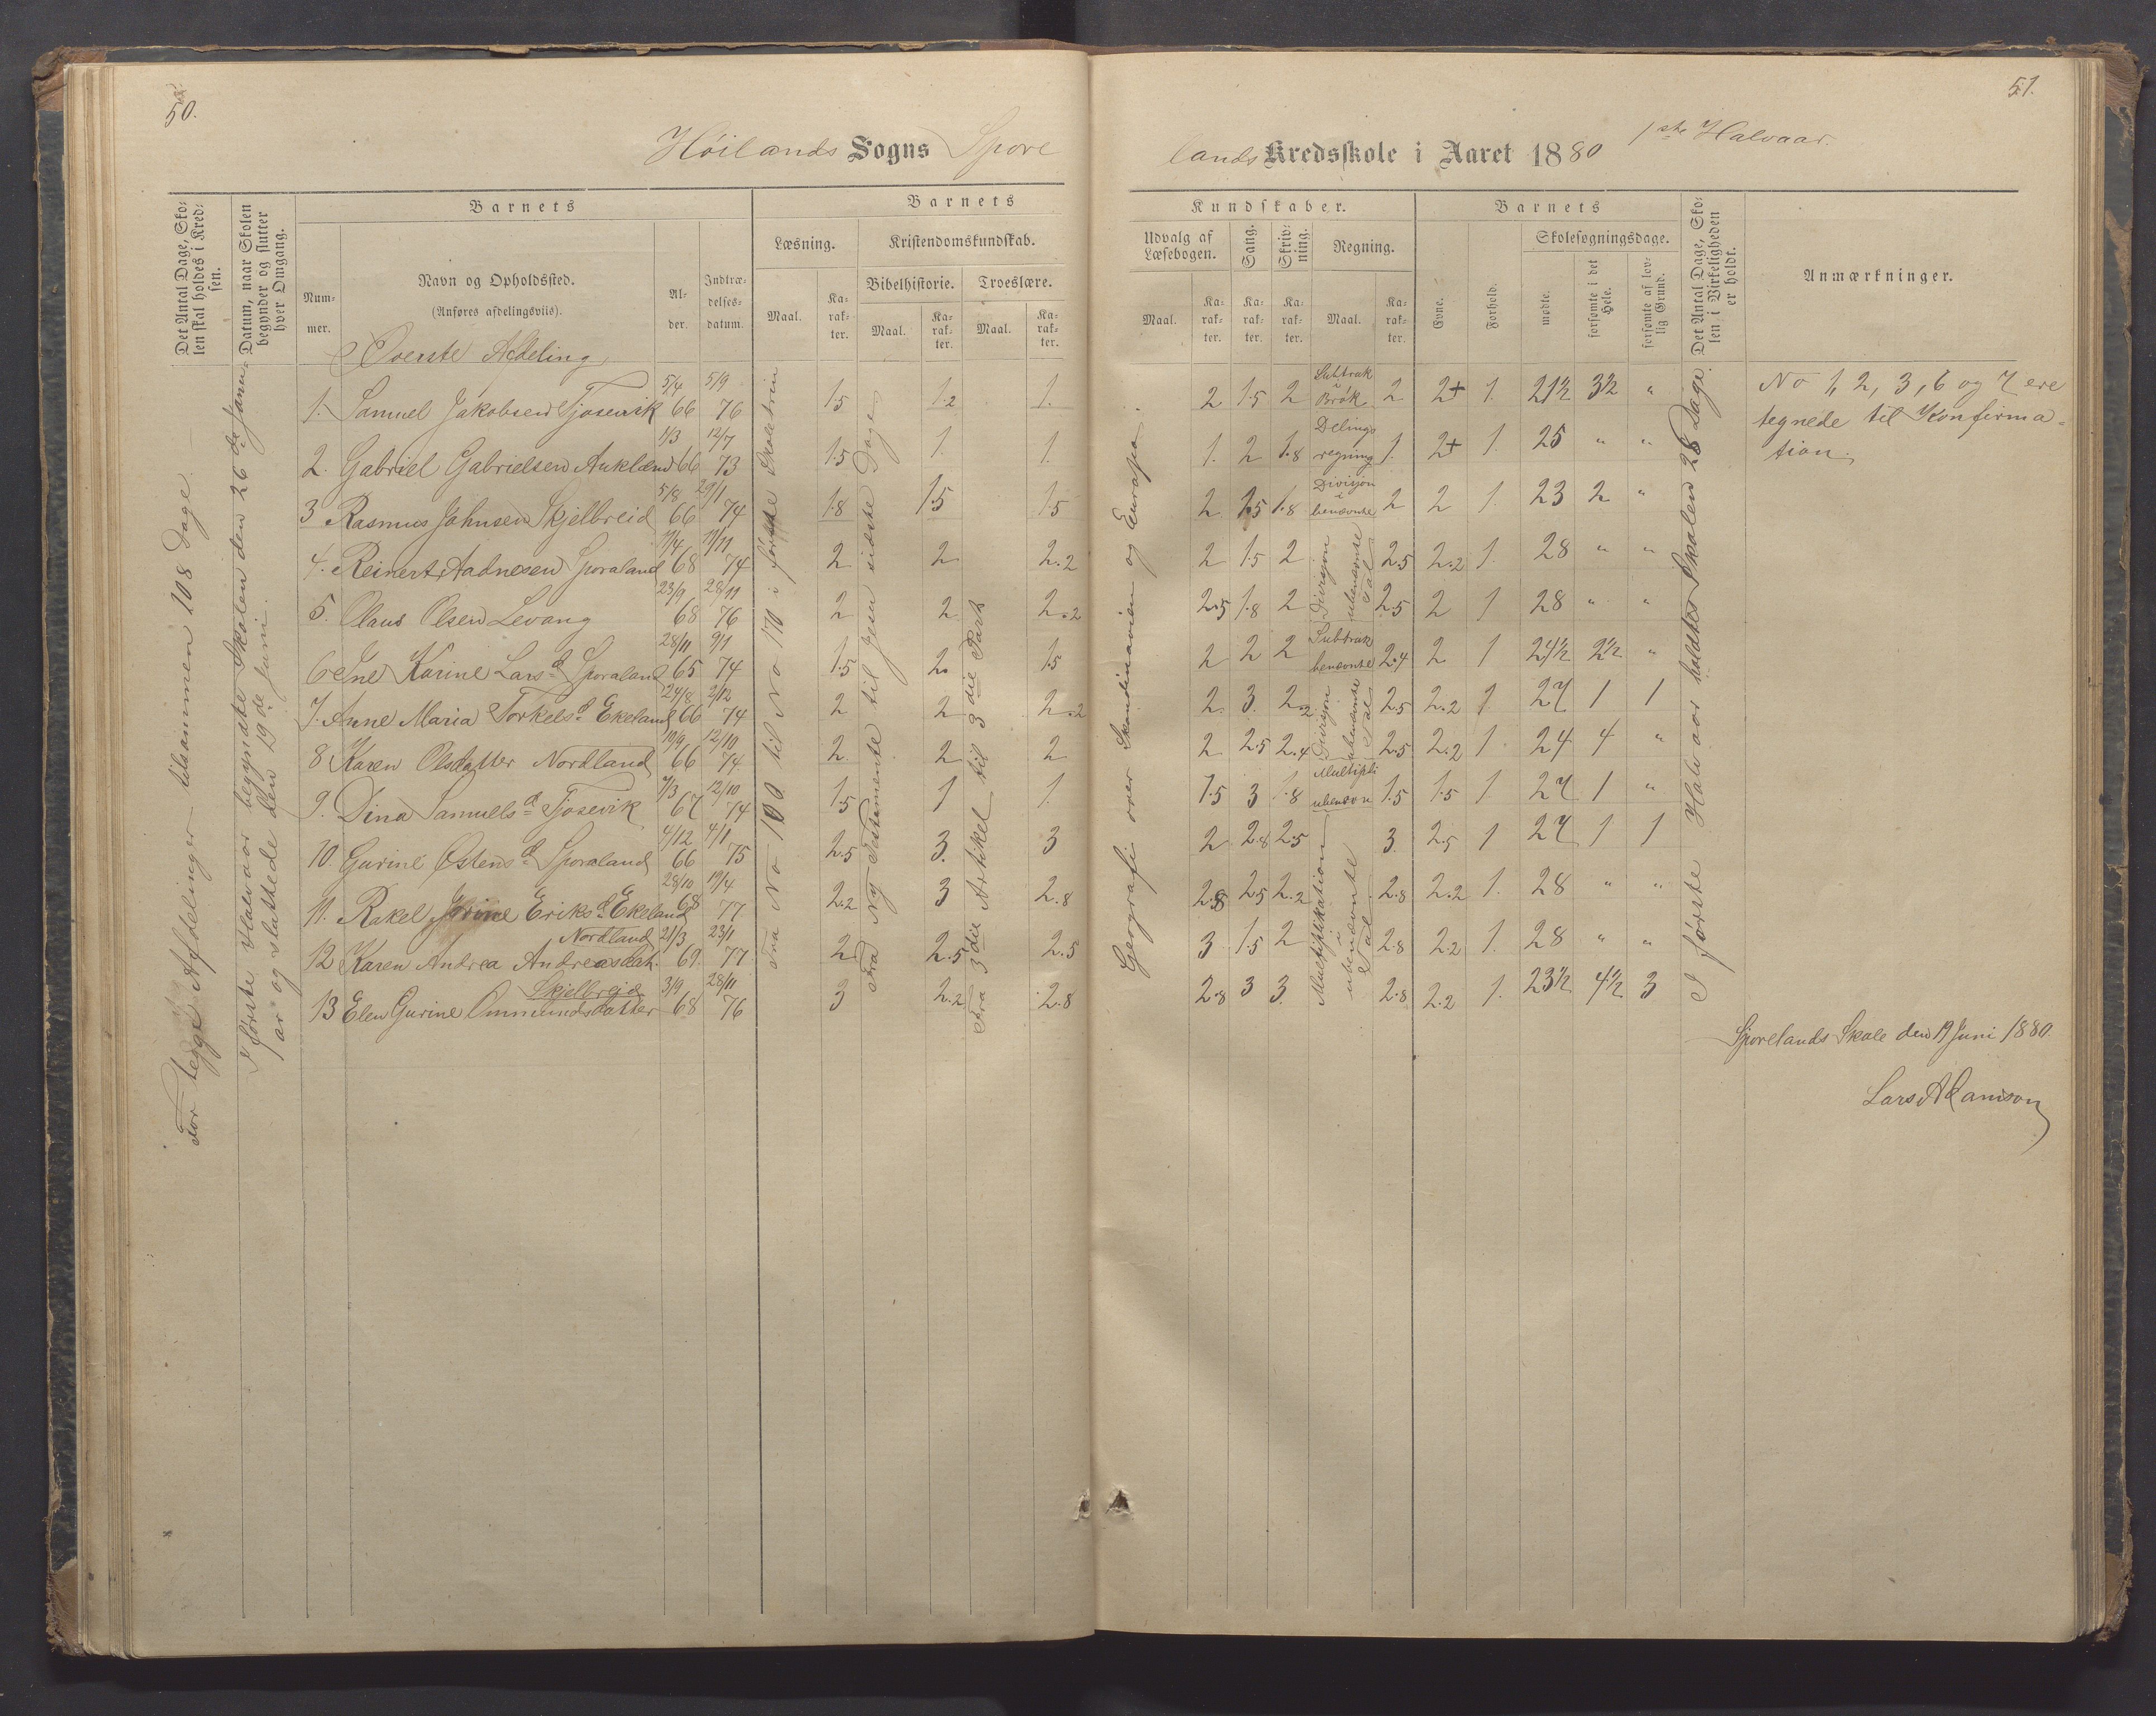 50.
Høilands Sogns Spore
Det Antal Dage, Sko-
len skal holdes i Kred-
sen.
Datum, naar Skolen
begynder og slutter
hver Omgang.
Barnets
Barnets
Num-
mer.
Navn og Opholdssted.
(Anføres afdelingsviis).
Al-
der.
Indtræ-
delses-
datum.
Læsning.
Kristendomskundskab.
Maal.
Ka-
rak-
ter.
Bibelhistorie.
Troeslære.
Maal.
Ka-
rak-
ter.
Maal.
Ka-
rak-
ter.
Øverste Afdeling
For begge Afdelinger tilsammen 108 Dage.
I første Halvaar begyndte Skolen den 26de Janu-
ar og sluttede den 19de Juni.
Fra No 100 til No 170 i første Skoletrin
Fra Ny Testamente til Jesu sidste Dage
Fra 3die Artikel til 3die Part
1. Samuel Jakobsen Tjosevik 5/4 66 5/9 76 1.5 1.2 1.
2. Gabriel Gabrielsen Aukland 1/3 66 12/7 73 1.5 1. 1.
3 Rasmus Johnsen Skjelbreid 5/8 66 29/1 74 1.8 1.5 1.5
4. Reinert Aadnesen Sporaland 11/4 68 11/11 74 2 2 2.2
5. Olaus Olsen Levang 23/9 68 28/11 76 2 2 2.2
6 Ine Karine Larsd Sporaland 28/11 65 9/1 74 1.5 2. 1.5
7. Anne Maria Torkelsd Ekeland 24/8 66 2/12 74 2 2 2.2
8 Karen Olsdatter Nordland 19/9 66 12/10 74 2. 2 2
9. Dina Samuelsd Tjosevik 7/3 67 12/10 74 1.5 1 1.
10. Gurine Østensd Sporaland 4/12 66 4/1 75 2.5 3. 3
11. Rakel Jorine Eriksd Ekeland 28/10 68 19/4 77 2.2 3 2.8
Nordland
12 Karen Andrea Andreasdat. 21/3 69. 23/1 77 2 2.5 2.5
Skjelbreid
13 Elen Gurine Ommundsdatter 3/9 68 28/11 76 3 2.2 2.8
51.
lands Kredsskole i Aaret 1880 1ste Halvaar.
Kundskaber.
Barnets
Udvalg af
Læsebogen.
Sang.
Skriv-
ning.
Regning.
Maal.
Ka-
rak-
ter.
Ka-
rak-
ter.
Ka-
rak-
ter.
Maal.
Ka-
rak-
ter.
Evne.
Forhold.
Skolesøgningsdage.
mødte.
forsømte i det
Hele.
forsømte af lov-
lig Grund.
Det Antal Dage, Sko-
len i Virkeligheden
er holdt.
Anmærkninger.
Geografi over Skandinavien og Europa.
I første Halvaar holdtes Skolen 28 Dage.
2 1.5 2 Subtrak i Brøk 2 2+ 1. 21½ 3½ "
1. 2 1.8 Delings regning 1. 2+ 1. 25 " "
2 2.5 1.8 Division i benævnte 2 2 1. 23 2 "
2 1.5 2 Division ubenævnte Tal 2.5 2.2 1. 28 " "
2.5 1.8 2 2.5 2 1 28 " "
2 2 2 Subtrak benævnte 2.4 2 1 24½ 2½ "
2. 3. 2.2 Division ubenævnte Tal 2.5 2.2 1. 27 1 1
2 2.5 2.4 2.5 2.2 1 24 4 "
1.5 3 1.8 Multipli ubenævn 1.5 1.5 1 27 1 "
2 2.8 2.5 Multiplikation i ubenævnte Tal 3. 2.5 1 27 1 1
2.8 2.5 2.2 2.8 2.2 1. 28 " "
3 1.5 2 2.8 2.2 1. 28 " "
2.8 3 3. 2.8 2.2 1. 23½ 4½ 3
No 1, 2, 3, 6 og 7 ere
tegnede til Konfirma-
tion.
Sporelands Skole den 19 Juni 1880.
Lars Adamson